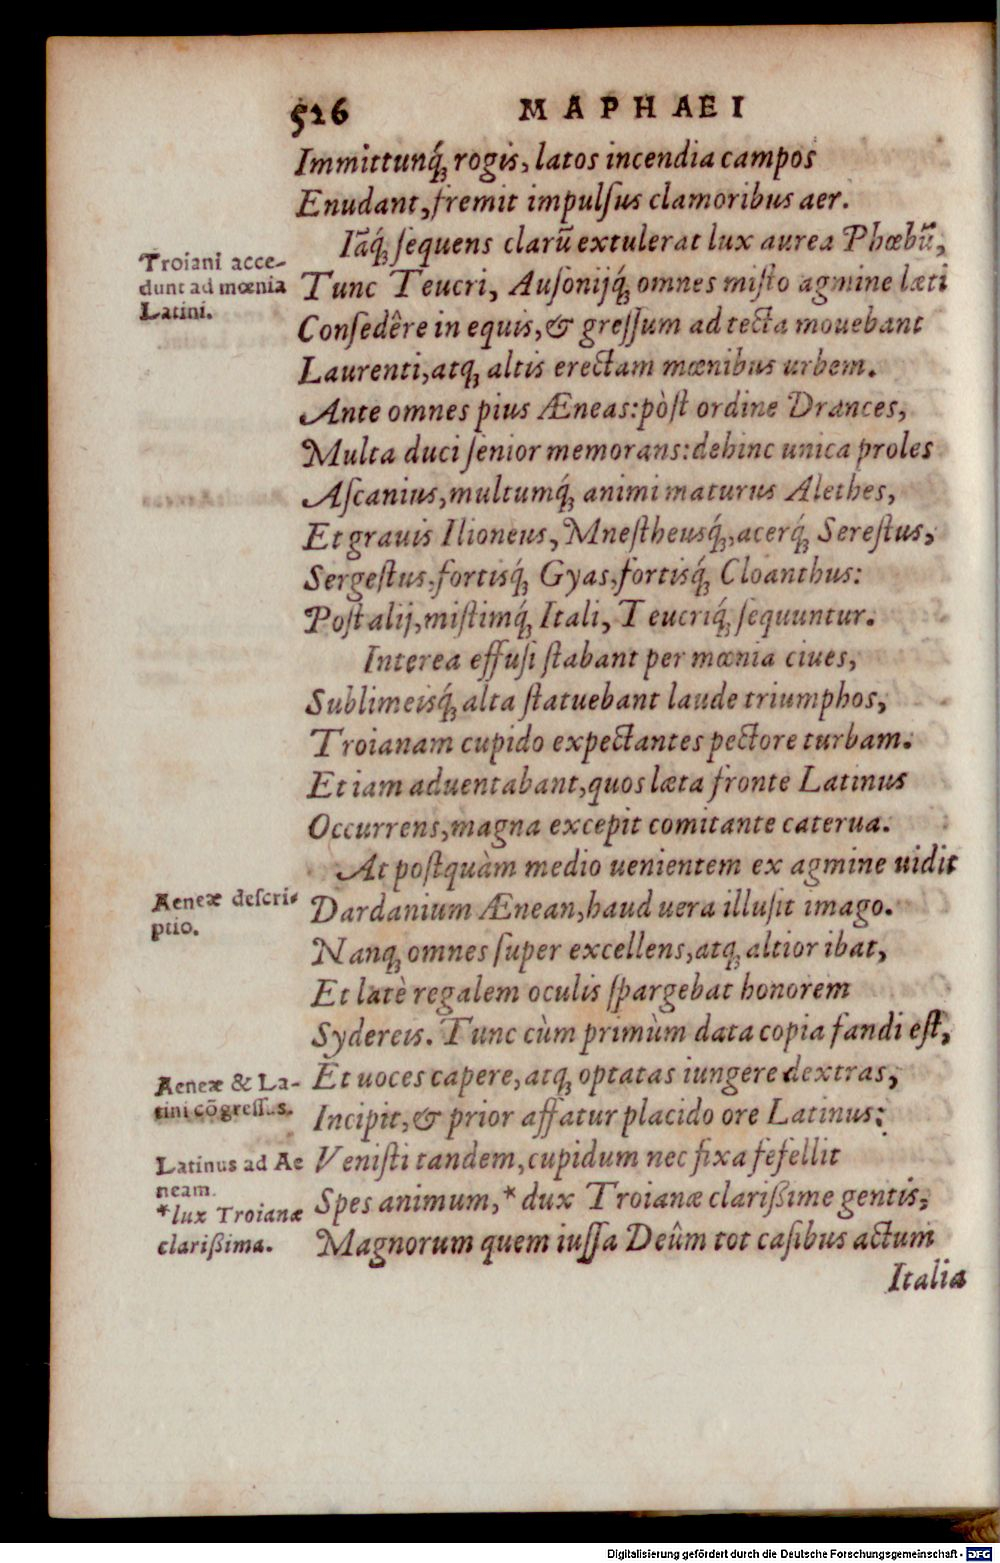 526 MAPHAEI
Immittunq́; rogis, latos incendia campos
Enudant, fremit impulſus clamoribus aer.
Iãq́; ſequens clarũ extulerat lux aurea Phœbũ,
Troiani acce-
dunt ad mœnia
Latini.
Tunc Teucri, Auſonijq́; omnes miſto agmine læti
Conſedêre in equis, & greſſum ad tecta mouebant
Laurenti, atq; altis erectam mœnibus urbem.
Ante omnes pius Æneas: pòſt ordine Drances,
Multa duci ſenior memorans: dehinc unica proles
Aſcanius, multumq́; animi maturus Alethes,
Et grauis Ilioneus, Mneſtheusq́;, acerq́; Sereſtus,
Sergeſtus, fortisq́; Gyas, fortisq́; Cloanthus:
Poſt alij, miſtimq́; Itali, Teucriq́; ſequuntur.
Interea effuſi ſtabant per mœnia ciues,
Sublimeisq́; alta ſtatuebant laude triumphos,
Troianam cupido expectantes pectore turbam.
Et iam aduentabant, quos læta fronte Latinus
Occurrens, magna excepit comitante caterua.
At poſtquàm medio uenientem ex agmine uidit
Aeneæ deſcri-
ptio.
Dardanium Ænean, haud uera illuſit imago.
Nanq; omnes ſuper excellens, atq; altior ibat,
Et latè regalem oculis ſpargebat honorem
Sydereis. Tunc cùm primùm data copia fandi eſt,
Aeneæ & La-
tini cõgreſſus.
Et uoces capere, atq; optatas iungere dextras,
Incipit, & prior affatur placido ore Latinus:
Latinus ad Ae
neam.
Veniſti tandem, cupidum nec fixa fefellit
*lux Troianæ
clarißima.
Spes animum, * dux Troianæ clarißime gentis,
Magnorum quem iuſſa Deûm tot caſibus actum
Italia
Digitalisierung gefördert durch die Deutsche Forschungsgemeinschaft - DFG